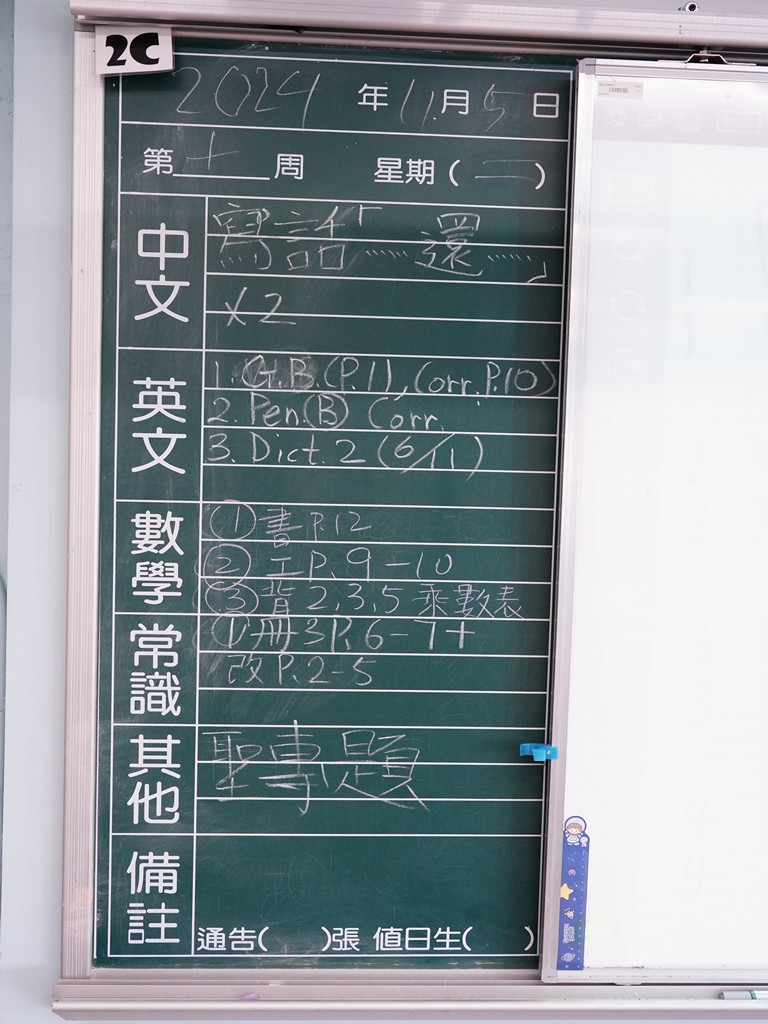 2C
2024 年 11 月 5 日
第 十 周 星期 ( 二 )
中文
寫話「……還……」
x2
英文
1. G.B. (P.1), Corr. P.10
2. Pen. (B) Corr.
3. Dict. 2 (6/11)
數學
① 書 P.12
② 工 P. 9-10
③ 背 2,3,5 乘數表
常識
① 冊3 P. 6-7+
改 P. 2-5
其他
聖專題
備註
通告( )張 值日生( )